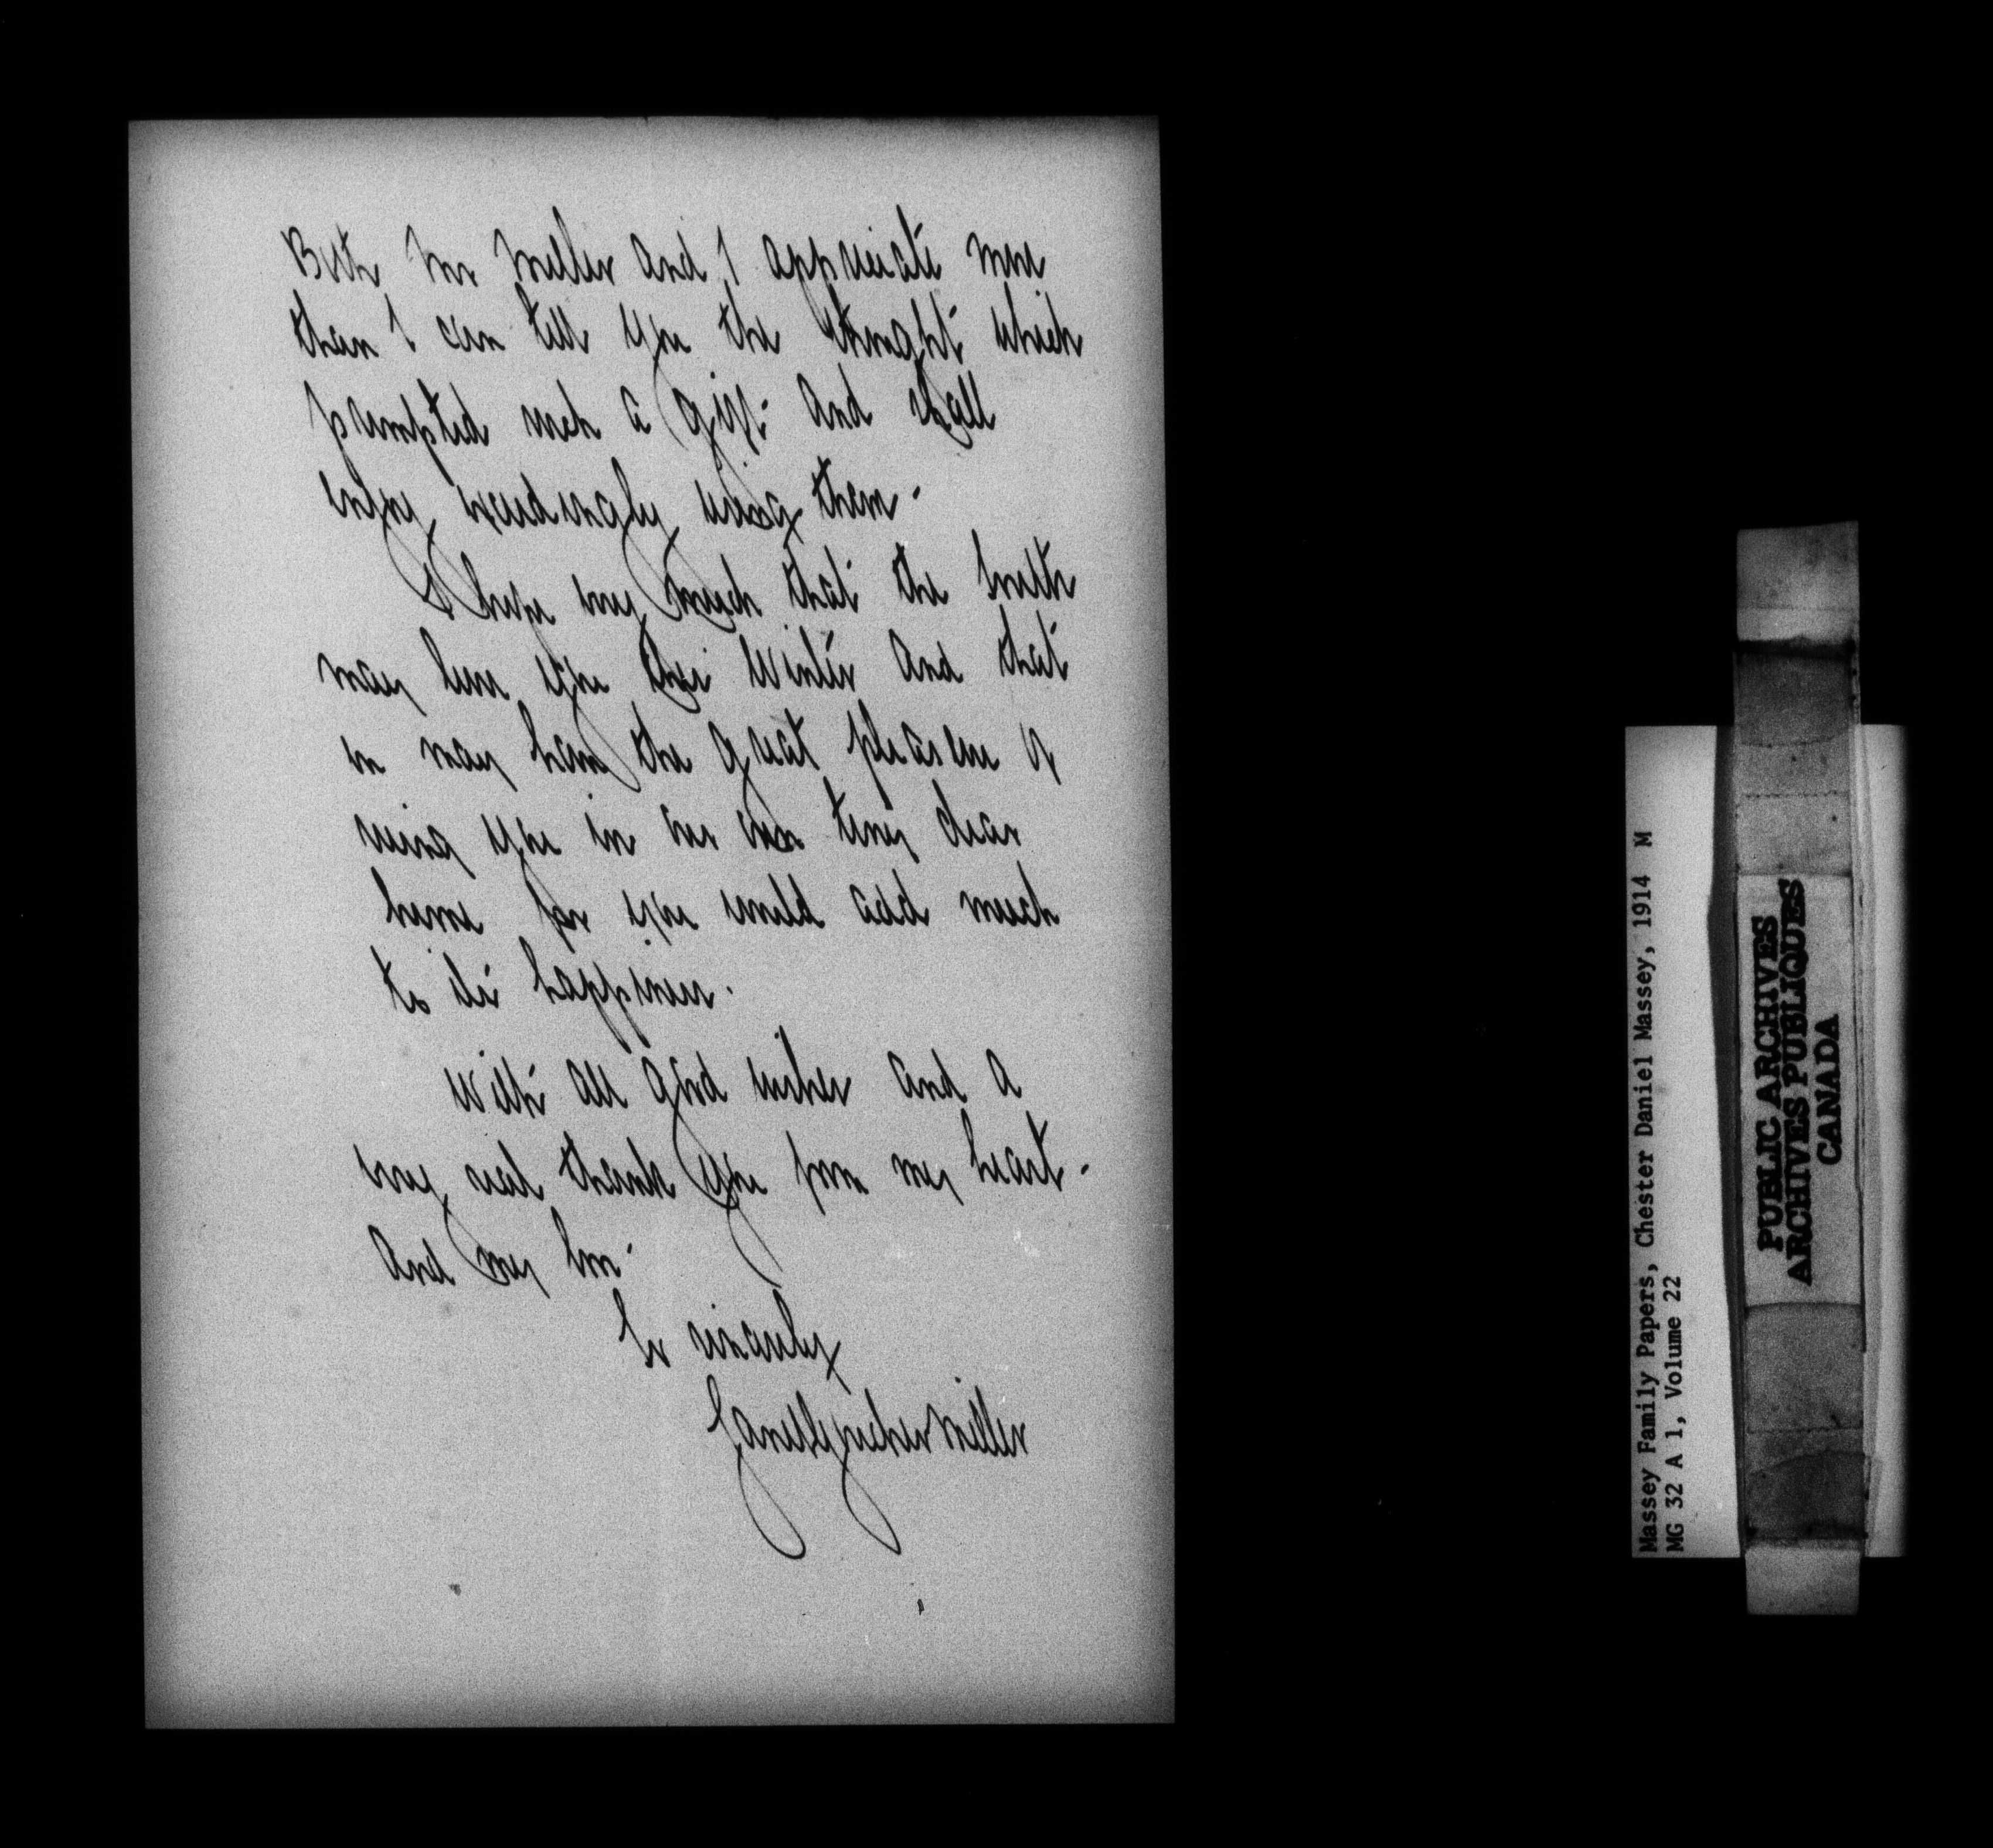 Both Mr Miller and I appreciate more
than I can tell you the thought which
prompted such a gift and shall
enjoy exceedingly using them.
I hope very much that the South
may lure you this Winter and that
we may have the great pleasure of
seeing you in our own tiny dear
home for you would add much
to its happiness.
With all good wishes and a
very real thank you from my heart.
And my love
So sincerely
Miller
Massey Family Papers, Chester Daniel Massey, 1914 M
MG 32 A 1, Volume 22
PUBLIC ARCHIVES
ARCHIVES PUBLIQUES
CANADA